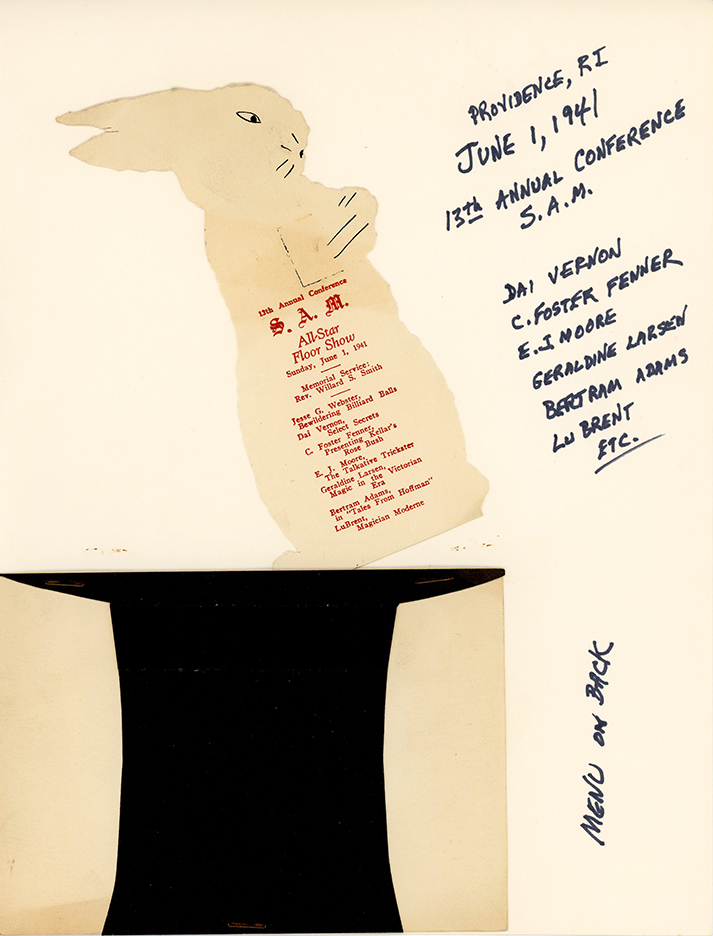 PROVIDENCE, RI
JUNE 1, 1941
13th ANNUAL CONFERENCE
S.A.M.
DAI VERNON
C. FOSTER FENNER
E.J. MOORE
GERALDINE LARSEN
BERTRAM ADAMS
LU BRENT
ETC.
13th Annual Conference
S. A. M.
All-Star
Floor Show
Sunday, June 1, 1941
Memorial Service:
Rev. Willard S. Smith
Jesse G. Webster,
Bewildering Billiard Balls
Dai Vernon,
Select Secrets
C. Foster Fenner,
Presenting Kellar's
Rose Bush
E. J. Moore,
The Talkative Trickster
Geraldine Larsen,
Magic in the Victorian
Era
Bertram Adams,
in "Tales From Hoffman"
LuBrent,
Magician Moderne
MENU ON BACK